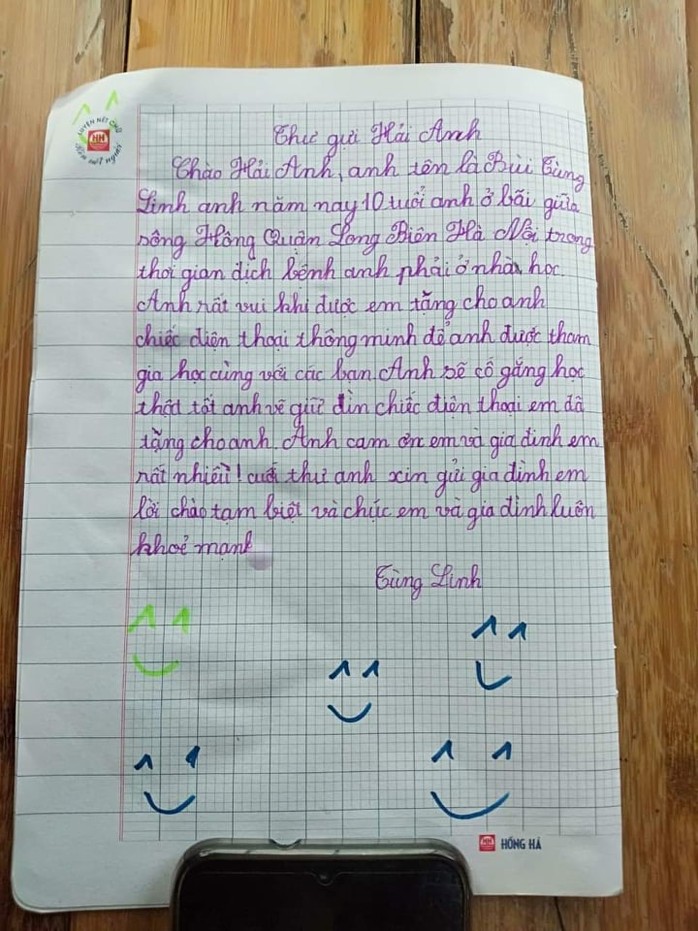 LUYỆN NÉT CHỮ
HH
Rèn nết người
Thư gửi Hải Anh
Chào Hải Anh, anh tên là Bùi Tùng
Linh anh năm nay 10 tuổi anh ở bãi giữa
sông Hồng Quận Long Biên Hà Nội trong
thời gian dịch bệnh anh phải ở nhà học.
Anh rất vui khi được em tặng cho anh
chiếc điện thoại thông minh để anh được tham
gia học cùng với các bạn. Anh sẽ cố gắng học
thật tốt anh sẽ giữ dìn chiếc điện thoại em đã
tặng cho anh. Anh cảm ơn em và gia đình em
rất nhiều! cuối thư anh xin gửi gia đình em
lời chào tạm biệt và chúc em và gia đình luôn
khoẻ mạnh
Tùng Linh
HH HỒNG HÀ